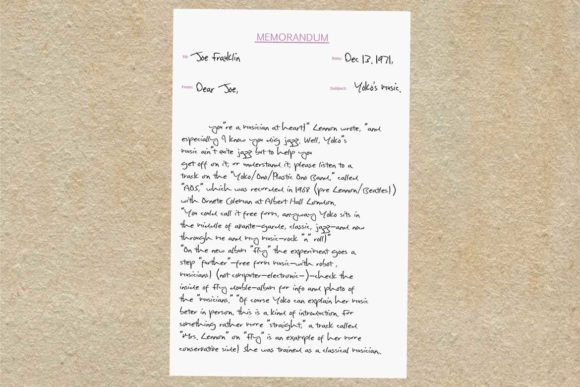 MEMORANDUM
To: Joe Franklin Date: Dec 13, 1971,
From: Dear Joe, Subject: Yoko's music.
you"re a musician at heart!" Lennon wrote, "and
especially I know you dig jazz. Well, Yoko"s
music ain"t quite jazz but to help you
get off on it, or understand it, please listen to a
track on the "Yoko/Ono/Plastic Ono Band," called
"AOS," which was recorded in 1968 (pre Lennon/Beatles!)
with Ornete Coleman at Albert Hall London.
"You could call it free form, anyway Yoko sits in
the middle of avante-garde, classic, jazz—and now
through me and my music-rock "n" roll)
"On the new album "fly" the experiment goes a
step "further"-free form music-with robot,
musicians! (not computer-electronic-)-check the
inside of fly double-album for info and photo of
the "musicians." "Of course Yoko can explain her music
beter in person, this is a kind of introduction. for
something rather more "straight," a track called
"Mrs. Lennon" on "fly" is an example of her more
conservative side! She was trained as a classical musician.